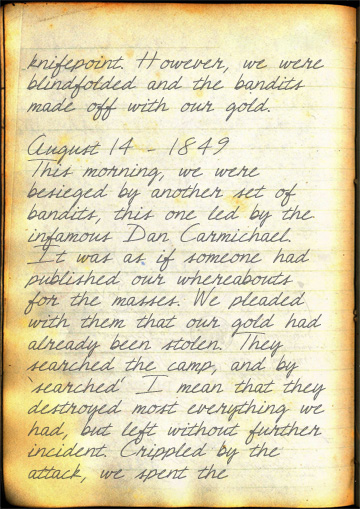 knifepoint. However, we were
blindfolded and the bandits
made off with our gold.
August 14 - 1849
This morning, we were
besieged by another set of
bandits, this one led by the
infamous Dan Carmichael.
It was as if someone had
published our whereabouts
for the masses. We pleaded
with them that our gold had
already been stolen. They
searched the camp, and by
'searched' I mean that they
destroyed most everything we
had, but left without further
incident. Crippled by the
attack, we spent the